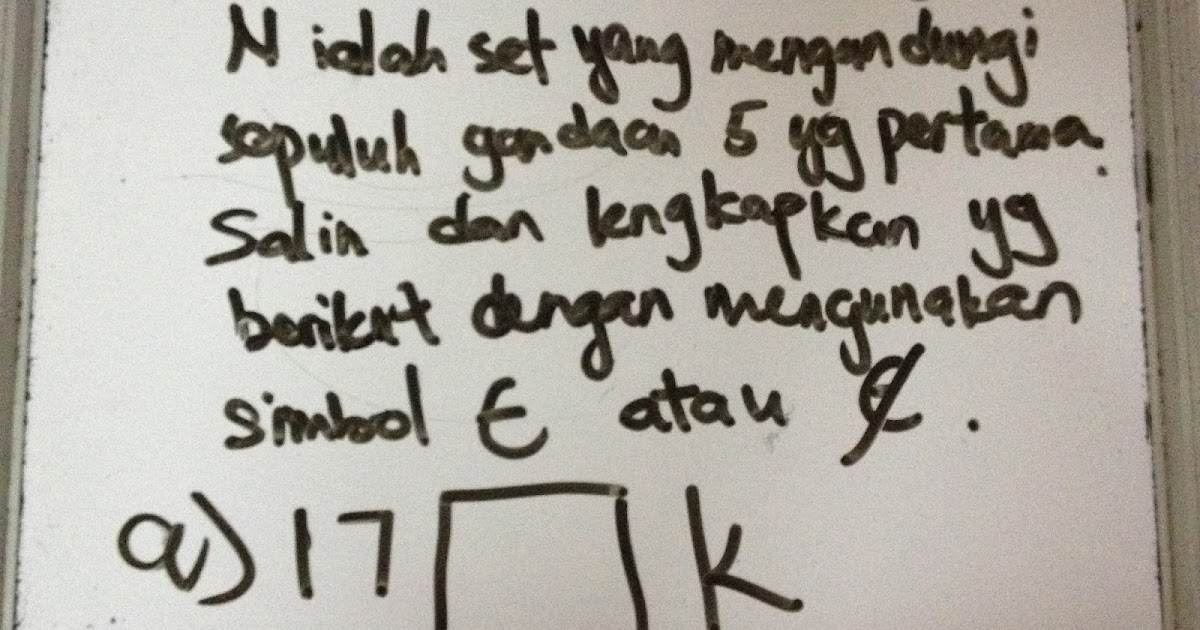 N ialah set yang mengandungi
sepuluh gandaan 5 yg pertama.
Salin dan lengkapkan yg
berikut dengan mengunakan
simbol ∈ atau ∉.
a) 17 □ K